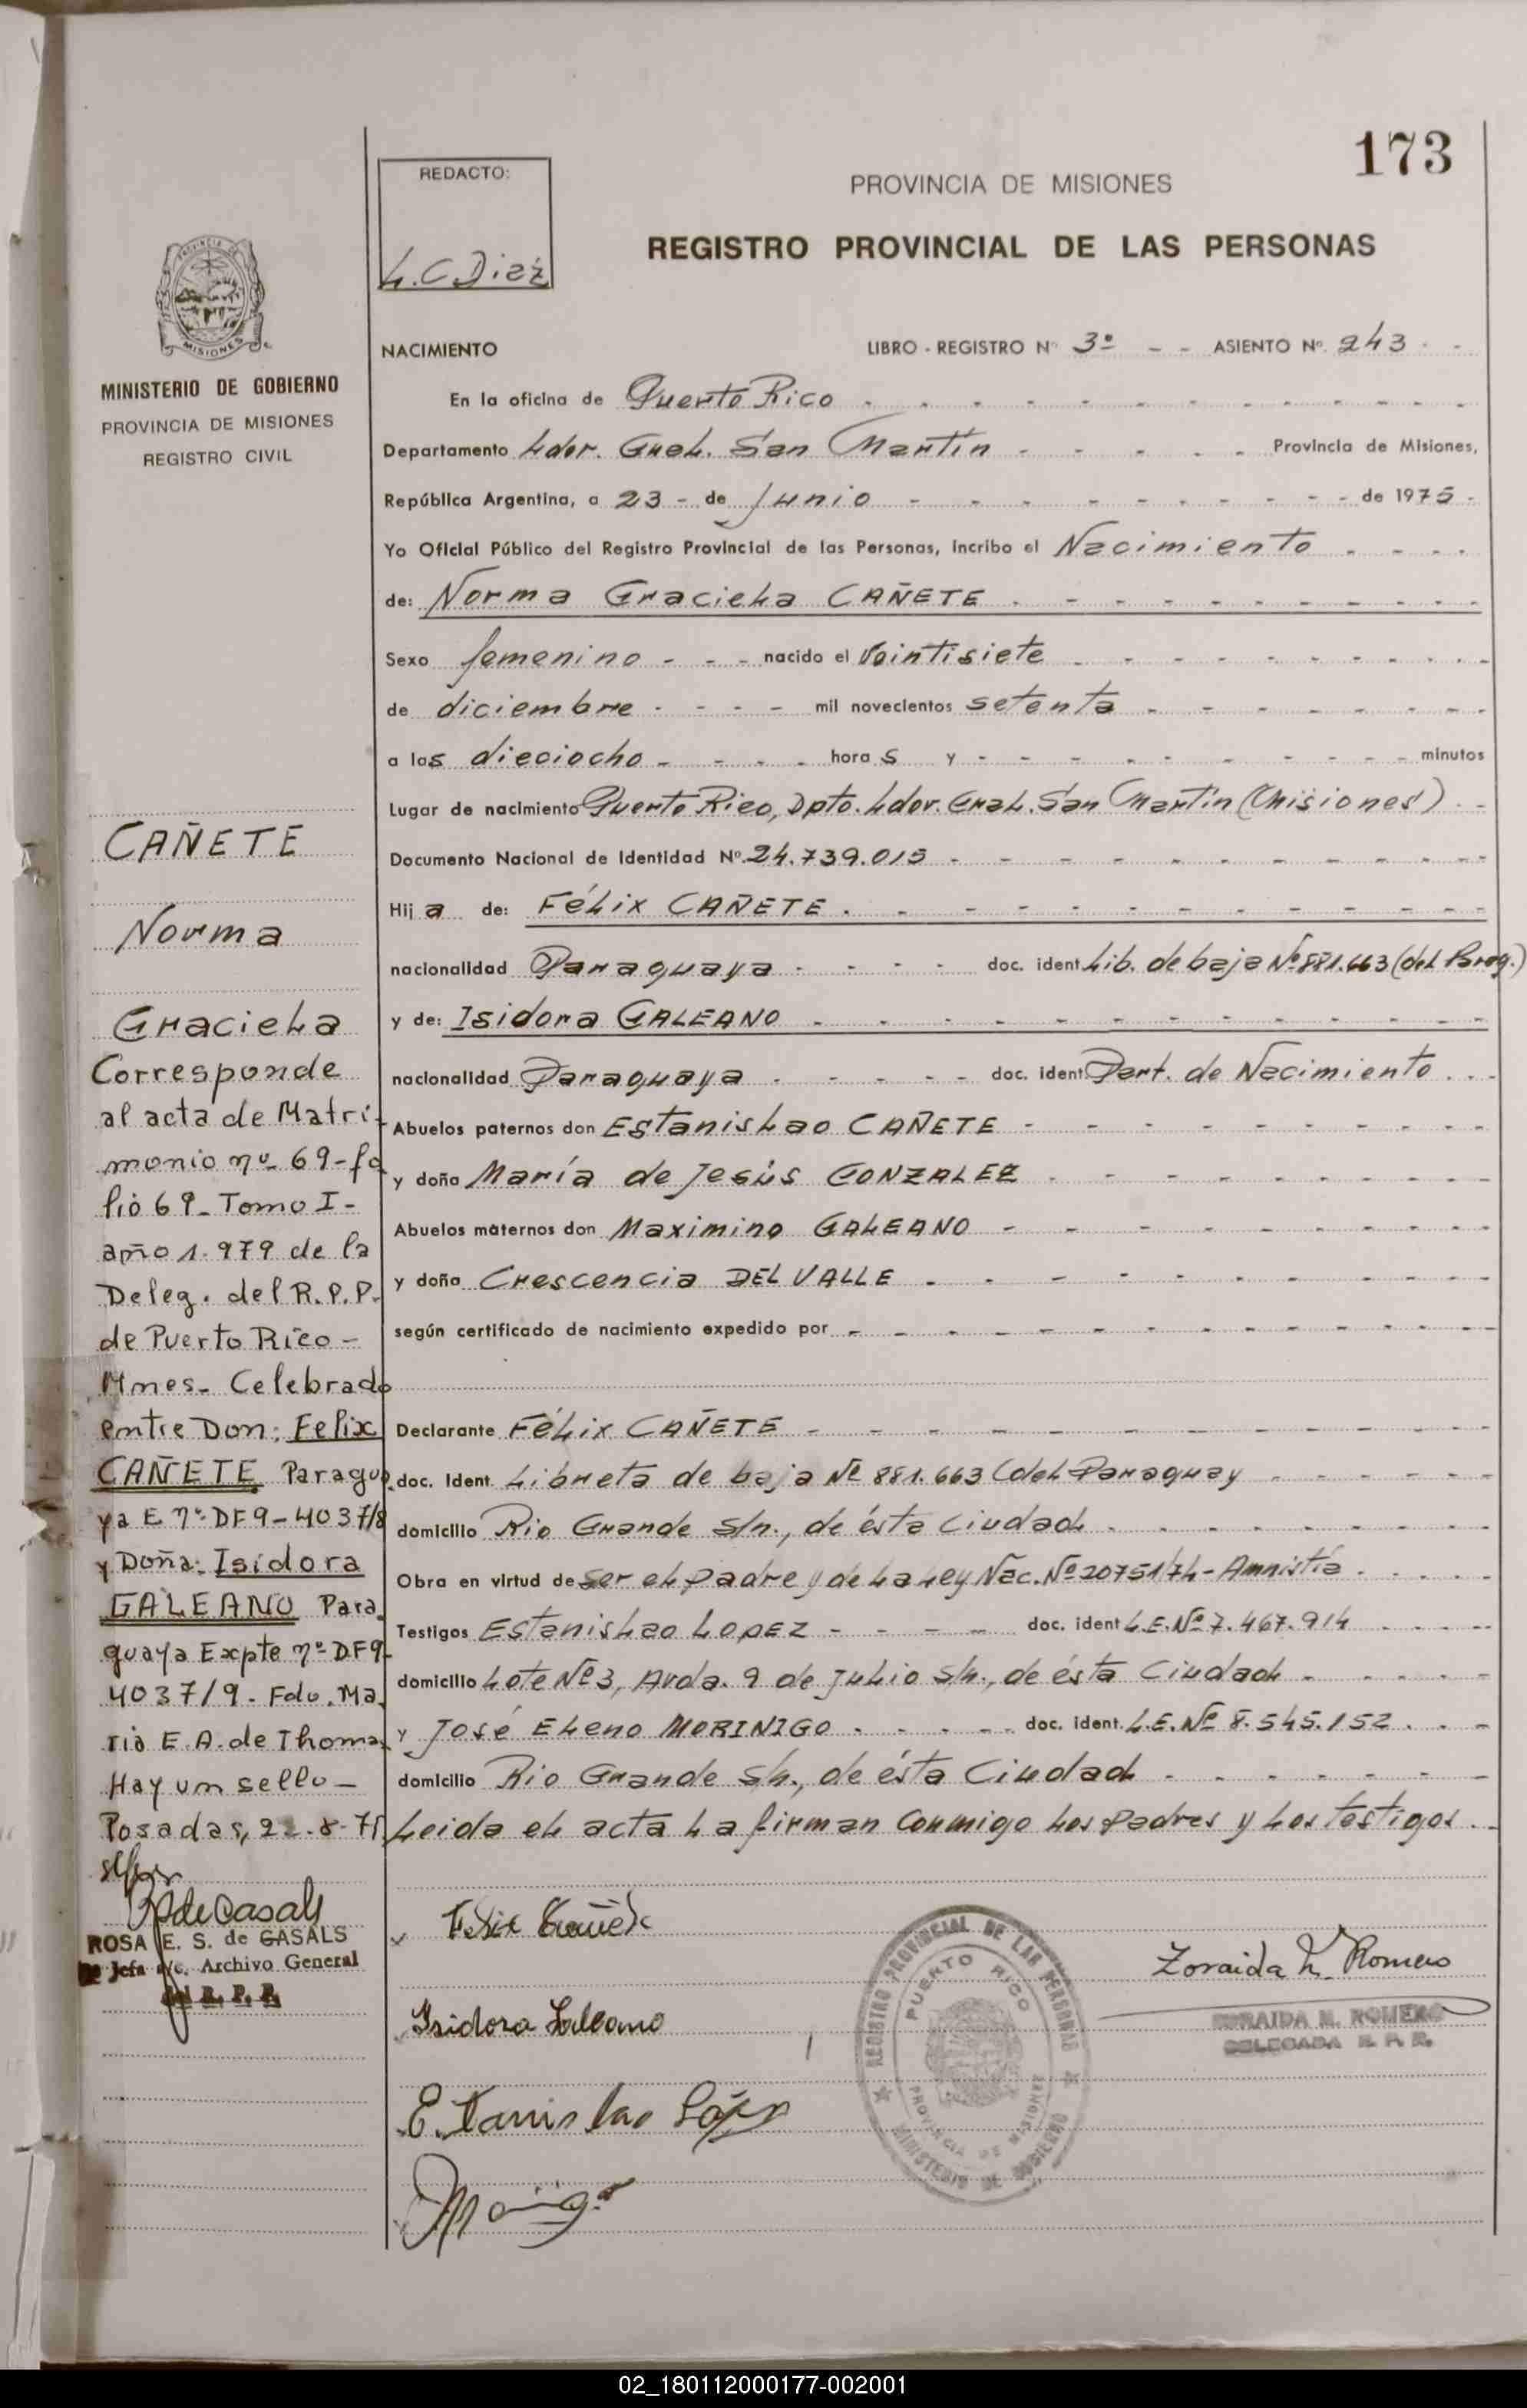 173
REDACTO:
L. C Diez
PROVINCIA DE MISIONES
REGISTRO PROVINCIAL DE LAS PERSONAS
MINISTERIO DE GOBIERNO
PROVINCIA DE MISIONES
REGISTRO CIVIL
NACIMIENTO
LIBRO - REGISTRO Nº 3º - - ASIENTO Nº. 243 - -
En la oficina de Puerto Rico
Departamento Ldor. Gral. San Martín Provincia de Misiones,
República Argentina, a 23 - de Junio de 1975 -
Yo Oficial Público del Registro Provincial de las Personas, incribo el Nacimiento
de: Norma Graciela CAÑETE
Sexo femenino - - - nacido el veintisiete
de diciembre - - - - mil novecientos setenta
a las dieciocho - - - - horas y - minutos
Lugar de nacimiento Puerto Rico, Dpto. Ldor. Gral. San Martín (Misiones)
Documento Nacional de Identidad Nº. 24.739.015
Hija de: Félix CAÑETE
nacionalidad Paraguaya - - - - doc. ident. Lib. de baja Nº 881.663 (del Parag.)
y de: Isidora GALEANO
nacionalidad Paraguaya - - - - doc. ident. Part. de Nacimiento
Abuelos paternos don Estanislao CAÑETE
y doña María de Jesús GONZALEZ
Abuelos maternos don Maximino GALEANO
y doña Crescencia DEL VALLE
según certificado de nacimiento expedido por
Declarante Félix CAÑETE
doc. Ident. Libreta de baja Nº 881.663 (del Paraguay
domicilio Rio Grande s/n., de ésta Ciudad
Obra en virtud de ser el padre y de la Ley Nac. Nº 20751/74 - Amnistía
Testigos Estanislao LOPEZ - - - - doc. ident. L.E. Nº 7.467.914
domicilio Lote Nº 3, Avda. 9 de Julio s/n., de ésta Ciudad
y José Eleno MORINIGO - - - - doc. ident. L.E. Nº 8.545.152
domicilio Rio Grande s/n., de ésta Ciudad
Leida el acta la firman conmigo los padres y los testigos.
CAÑETE
Norma
Graciela
Corresponde
al acta de Matri-
monio nº 69 - fo
lio 69 - Tomo I -
año 1.979 de la
Deleg. del R.P.P.
de Puerto Rico -
Mnes - Celebrado
entre Don: Felix
CAÑETE Paragua
ya E nº DF9-4037/8
y Doña: Isidora
GALEANO Para
guaya Expte nº DF9-
4037/9 - Fdo. Ma
ria E. A. de Thomas
Hay un sello -
Posadas,
ROSA E. S. de CASALS
Jefa a/c. Archivo General
del R. P. P.
Felix Cañete
Isidora Galeano
Estanislao López
Zoraida M. Romero
ZORAIDA M. ROMERO
DELEGADA R. P. P.
REGISTRO PROVINCIAL DE LAS PERSONAS
PUERTO RICO
PROVINCIA DE MISIONES
MINISTERIO DE GOBIERNO
02_180112000177-002001